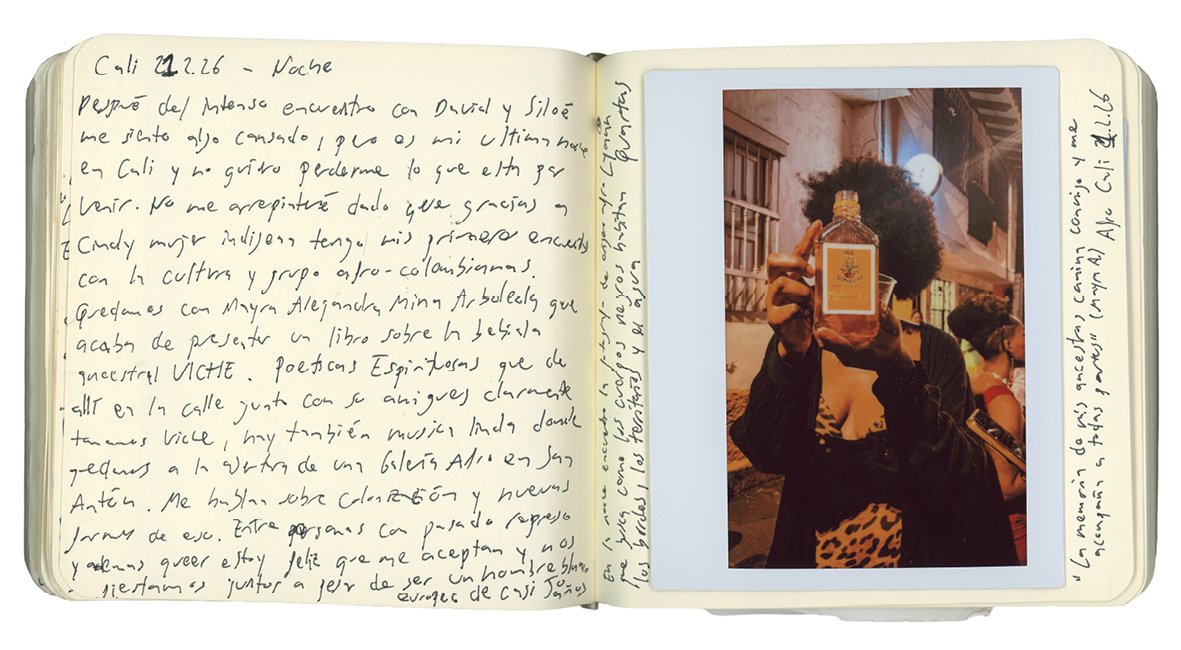 Cali 21.2.26 - Noche
Despué del intenso encuentro con David y Siloé
me siento algo cansado, pero es mi ultima noche
en Cali y no quiero perderme lo que esta por
venir. No me arrepintiré dado que gracias a
Cindy mujer indigena tengo mis primero encuentro
con la cultura y grupo afro-colombianas.
Quedamos con Mayra Alejandra Mina Arboleda que
acaba de presentar un libro sobre la bebida
ancestral VICHE. Poeticas Espirituosas que de
allí en la calle junto con su amigues claramente
tomamos Viche, hay también musica linda donde
quedamos a la apertura de una Galería Afro en San
Antón. Me hablan sobre colonización y nuevas
formas de eso. Entre personas con pasado represo
y ademas queer estoy feliz que me aceptan y nos
fiestamos juntos a pesar de ser un hombre blanco
europeo de casi 50 años
En la nace encuentro la fotografa
me como los cuerpos negros habitan puertas
los bordes, los territorios y el agua
"La memoria de mis ancestras caminan conmigo y me
acompaña a todas partes" (Mayra A.) Afro Cali 21.2.26